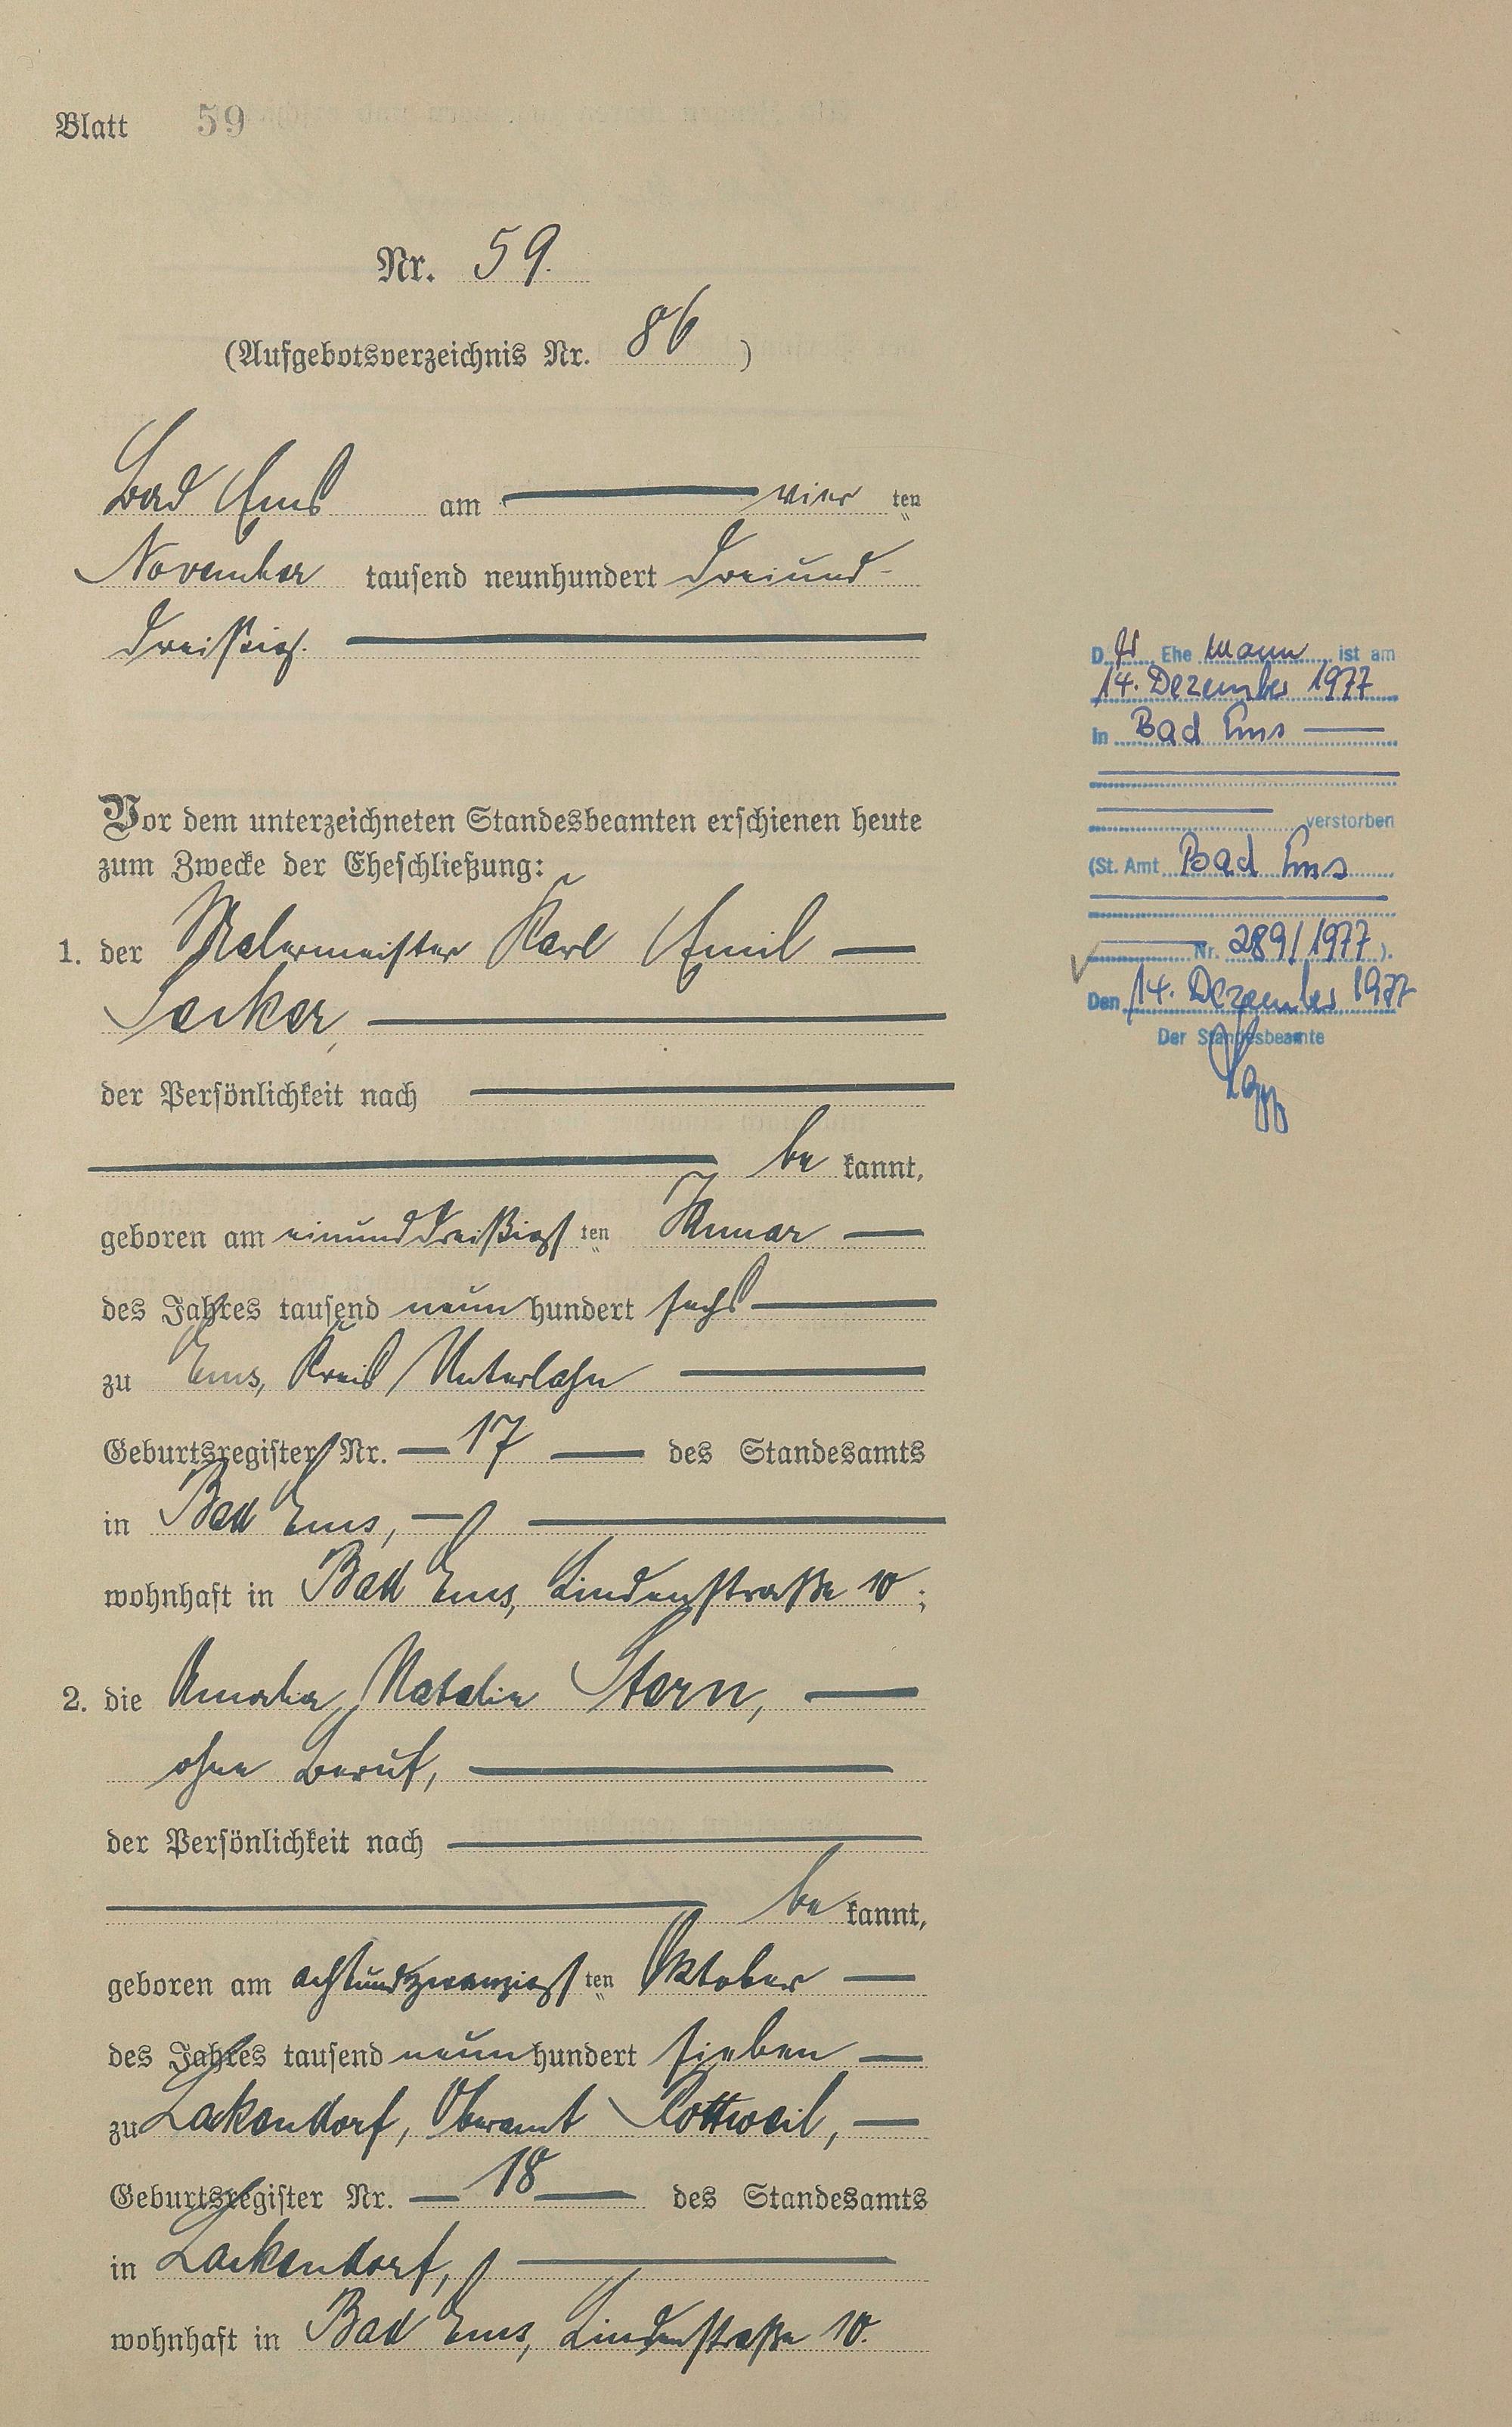 Blatt 59
Nr. 59.
(Aufgebotsverzeichnis Nr. 86)
Bad Ems am vier ten
November tausend neunhundert dreiund-
dreißig.
Vor dem unterzeichneten Standesbeamten erschienen heute
zum Zwecke der Eheschließung:
1. der Malermeister Karl Emil
der Persönlichkeit nach
be kannt,
geboren am einunddreißigsten Januar
des Jahres tausend neun hundert sechs
zu Ems, Kreis Unterlahn
Geburtsregister Nr. 17 des Standesamts
in Bad Ems,
wohnhaft in Bad Ems, Lindenstraße 10;
2. die Amalia Natalie Stern,
ohne Beruf,
der Persönlichkeit nach
be kannt,
geboren am achtundzwanzigsten Oktober
des Jahres tausend neun hundert sieben
zu Lackendorf, Oberamt Rottweil,
Geburtsregister Nr. 18 des Standesamts
in Lackendorf,
wohnhaft in Bad Ems, Lindenstraße 10.
D er Ehe mann ist am
14. Dezember 1977
in Bad Ems
verstorben
(St. Amt Bad Ems
Nr. 289/1977 ).
Den 14. Dezember 1977
Der Standesbeamte